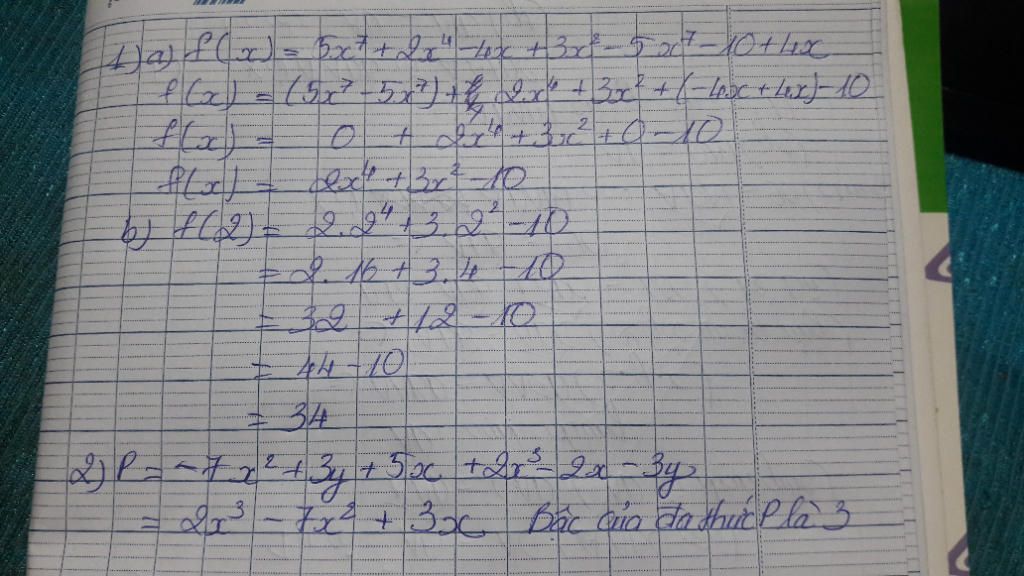 1) a) f(x) = 5x⁷ + 2x⁴ - 4x + 3x² - 5x⁷ - 10 + 4x
f(x) = (5x⁷ - 5x⁷) + 2x⁴ + 3x² + (-4x + 4x) - 10
f(x) = 0 + 2x⁴ + 3x² + 0 - 10
f(x) = 2x⁴ + 3x² - 10
b) f(2) = 2.2⁴ + 3.2² - 10
= 2.16 + 3.4 - 10
= 32 + 12 - 10
= 44 - 10
= 34
2) P = -7x² + 3y + 5x + 2x³ - 2x - 3y
= 2x³ - 7x² + 3x Bậc của đa thức P là 3